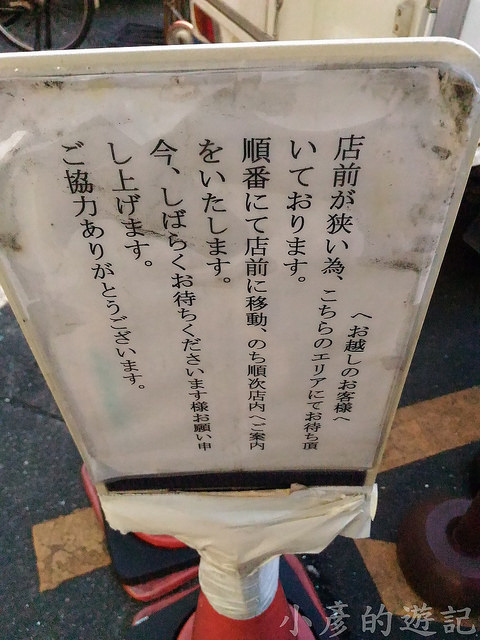 へお越しのお客様へ
店前が狭い為、こちらのエリアにてお待ち頂
いております。
順番にて店前に移動、のち順次店内へご案内
をいたします。
今、しばらくお待ちくださいます様お願い申
し上げます。
ご協力ありがとうございます。
小彥的遊記